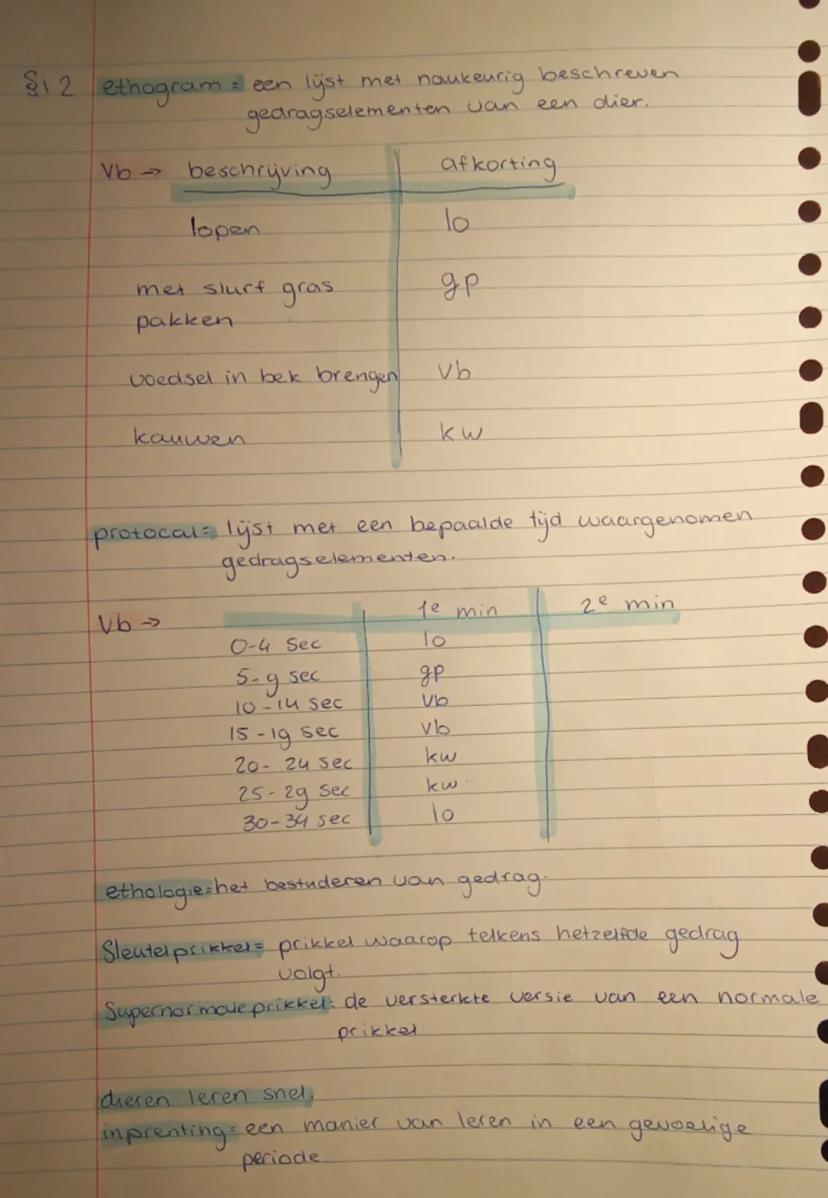 §12 ethogram = een lijst met naukeurig beschreven
gedragselementen van een dier.
Vb → beschrijving afkorting
lopen lo
met slurf gras gp
pakken
voedsel in bek brengen vb
kauwen kw
protocal = lijst met een bepaalde tijd waargenomen
gedragselementen.
Vb → 1e min 2e min
0-4 sec lo
5-9 sec gp
10-14 sec vb
15-19 sec vb
20-24 sec kw
25-29 sec kw
30-34 sec lo
ethologie = het bestuderen van gedrag.
Sleutelprikkel = prikkel waarop telkens hetzelfde gedrag
volgt.
Supernormale prikkel = de versterkte versie van een normale
prikkel
dieren leren snel.
inprenting = een manier van leren in een gevoelige
periode